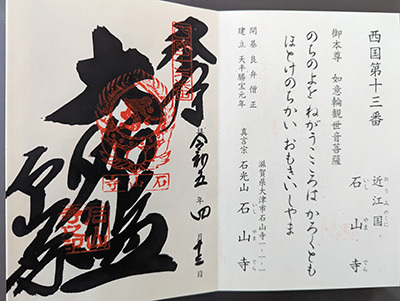 西国第十三番
近江国
おうみのくに
石山寺
いしやまでら
御本尊 如意輪観世音菩薩
のちのよを ねがうこころは かろくとも
ほとけのちかい おもきいしやま
開基 良弁僧正
建立 天平勝宝元年
滋賀県大津市石山寺一-一-一
真言宗 石光山 石山寺
いしやまでら
奉拝
令和五年四月十三日
石山寺